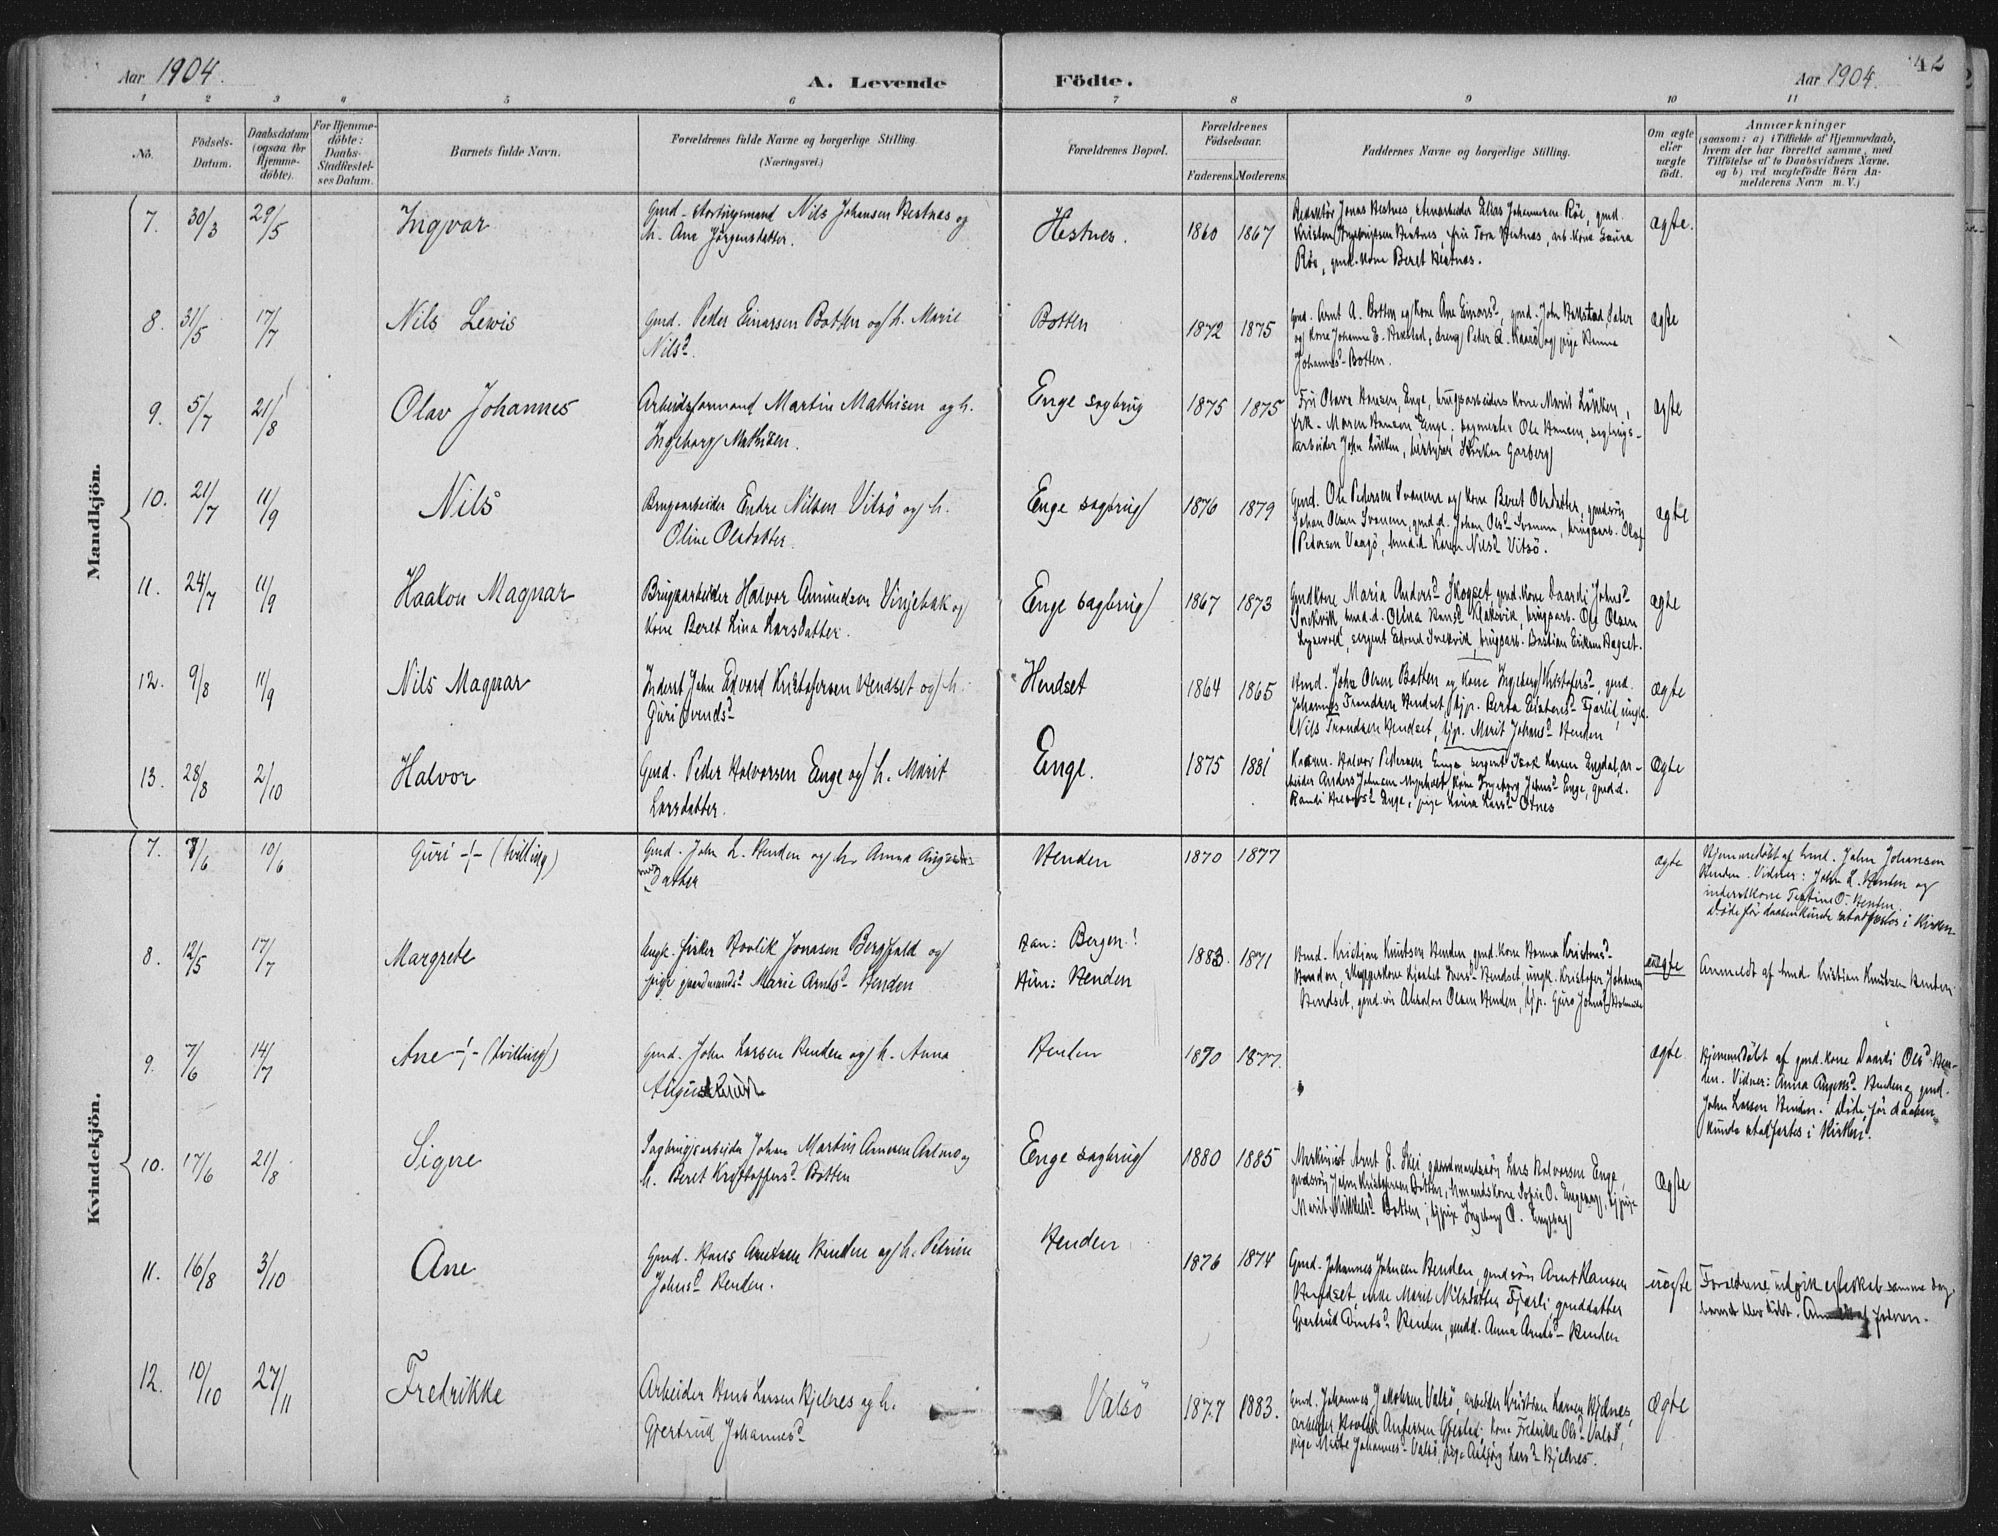 Aar 1904.
A. Levende Födte.
Aar 1904.
42
1 2 3 4 5 6 7 8 9 10 11
No.
Födsels-
Datum.
Daabsdatum
(ogsaa for
Hjemme-
döbte).
For Hjemme-
döbte:
Daabs-
Stadfæstel-
ses Datum.
Barnets fulde Navn.
Forældrenes fulde Navne og borgerlige Stilling.
(Næringsvei.)
Forældrenes Bopæl.
Forældrenes
Födselsaar.
Faderens. Moderens.
Faddernes Navne og borgerlige Stilling.
Om ægte
eller
uægte
födt.
Anmærkninger
(saasom: a) i Tilfælde af Hjemmedaab,
hvem der har forrettet samme, med
Tilföielse af to Daabsvidners Navne,
og b) ved uægtefödte Börn An-
melderens Navn m. V.)
Mandkjön.
7. 30/3 29/5 Ingvar
Gmd. Stortingsmand Nils Johansen Hestnes og
h. Ane Jörgensdatter.
Hestnes. 1860 1867
Redaktör Jonas Hestnes, Elias Johannesen Röe, gmd.
Kristen Hestnes, fru Tora Hestnes, arb. kone Laura
Röe, gmd. kone Beret Hestnes.
ægte.
8. 31/5 17/7 Nils Lewis
Gmd. Peder Einarsen Botten og h. Marie
Nilsd.
Botten 1872 1875
gmd. Arnt A. Botten og kone Ane Einarsd, gmd. John
og kone Johanne E. dreng Peder og pige Hanna
Johannesd Botten.
ægte
9. 5/7 21/8 Olav Johannes
Arbeidsformand Martin Mathisen og h.
Ingeborg Mathisen.
Enge sagbrug 1875 1875
Fru Olava Hansen, Enge, brugsarbeiders kone Marit Lökken,
frk. Maren Hansen Enge, sagmester Ole Hansen, sagbrugs-
arbeider John Lökken, bestyrer Störker Garberg
ægte
10. 21/7 11/9 Nils
Brugsarbeider Endre Nilsen Vitsö og h.
Oline Olsdatter.
Enge sagbrug 1876 1879
Gmd. Ole Pedersen Svanem og kone Beret Olsdatter, gmdsön
Johan Olsen Svanem, gmd.d. Johan Olsd Svanem, brugsarb. Olaf
Pedersen Vaagö, hmd.d. Karen Nilsd Vitsö.
ægte
11. 24/7 11/9 Haakon Magnar
Brugsarbeider Halvor Amundsen Vinjebak og
kone Beret Lina Larsdatter.
Enge sagbrug 1867 1873
Gmdkone Maria Andersd Skogset, gmd. kone Daardi Johnsd
Snekvik, hmd.d. Olina Hansd brugsarb. Ole Olsen
sergent Edvard Snekvik, brugsarb. Bastian Eriksen
ægte
12. 9/8 11/9 Nils Magnar
Inderst John Edvard Kristofersen Hendset og h.
Guri Svendsd
Hendset 1864 1865
Hmd. John Olsen Botten og kone Ingeborg Kristofersd, gmd.
Johannes Trondsen Hendset, tjp. Berta Fjærlid, ungk.
Nils Trondsen Hendset, tjp. Marit Johansd Henden
ægte
13. 28/8 2/10 Halvor
Gmd. Peder Halvorsen Enge og h. Marit
Larsdatter.
Enge. 1875 1881
Halvor Pedersen Enge sergent Isak Larsen Engdal, ar-
beider Anders Johnsen kone Ingeborg Johnsd Enge, gmd.d.
Randi Halvorsd Enge, pige Laura Larsd Otnes
ægte
Kvindekjön.
7. 7/6 10/6 Guri -!- (tvilling)
Gmd. John L. Henden og h. Anna
datter
Henden 1870 1877
ægte
Hjemmedöbt af hmd. John Johansen
Henden. Vidner: John L. Henden og
inderstkone O. Henden.
Döde för daaben kunde stadfæstes i Kirken.
8. 12/5 17/7 Margrete
Ungk. fisker Rovlik Jonasen Bergfald og
pige gaardmandsd Marie Arntsd Henden
Han: Bergen!
Hun: Henden
1883. 1871
Hmd. Kristian Knutsen Henden, gmd. kone Hanna
Henden, Hendset, ungk. Kristofer Johansen
Hendset, gmd. sön Absalon Olsen Henden, tjp. Guro Johnsd
uægte
Anmeldt af hmd. Kristian Knutsen Henden.
9. 7/6 14/7 Ane -!- (tvilling)
Gmd. John Larsen Henden og h. Anna
Henden 1870 1877.
ægte
Hjemmedöbt af gmd. kone Daardi Olsd Hen-
den. Vidner: Anna Henden og gmd.
John Larsen Henden. Döde för daaben
kunde stadfæstes i Kirken.
10. 17/6 21/8 Signe
Sagbrugsarbeider Johan Martin Arnesen og
h. Beret Kristoffersd Botten
Enge sagbrug 1880 1885
Maskinist Arnt E. Skei, gaardmandssön Lars Halvorsen Enge,
gmdsön John Kristofersen Botten, hmandskone Sofie O. Engesag, tjpige
Marit Mikkelsd Botten, tjpige Ingeborg O. Engesag
ægte
11. 16/8 3/10 Ane
Gmd. Hans Arntsen Henden og h. Petrine
Johnsd Henden.
Henden 1876 1874
Gmd. Johannes Johnsen Henden, gmdsön Arnt Hansen
Hendset, enke Marit Nilsdatter Fjærli, gmddatter
Gjertrud Arntsd Henden, gmdd. Anna Arntsd Henden
uægte
Forældrene indgik egteskab samme dag
barnet blev döbt. Anmeldt af faderen.
12. 10/10 27/11 Fredrikke
Arbeider Hans Larsen Kjelnes og h.
Gjertrud Johannesd
Valsö 1877 1883.
Gmd. Johannes Jakobsen Valsö, arbeider Kristian Larsen Kjelnes,
arbeider Andersen kone Fredrikke Olsd Valsö,
pige Johannesd Valsö, pige Aasbjörg Larsd Kjelnes.
ægte